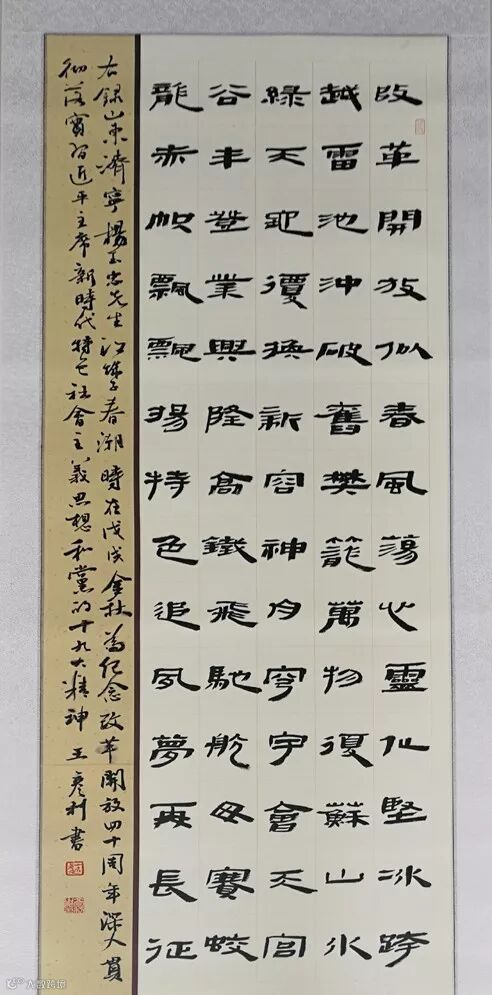 改革開放似春風蕩心靈化堅冰跨
越雷池沖破舊樊籠萬物復蘇山水
綠天地覆換新容神舟穹宇會天宮
谷丰登業興隆高鐵飛馳航母賽蛟
龍赤幟飄飄揚特色追夙夢再長征
右錄山東濟寧楊玉忠先生江城子春潮時在戊戌金秋為紀念改革開放四十周年深入貫
徹落實習近平主席新時代特色社會主義思想和黨的十九大精神王彥利書